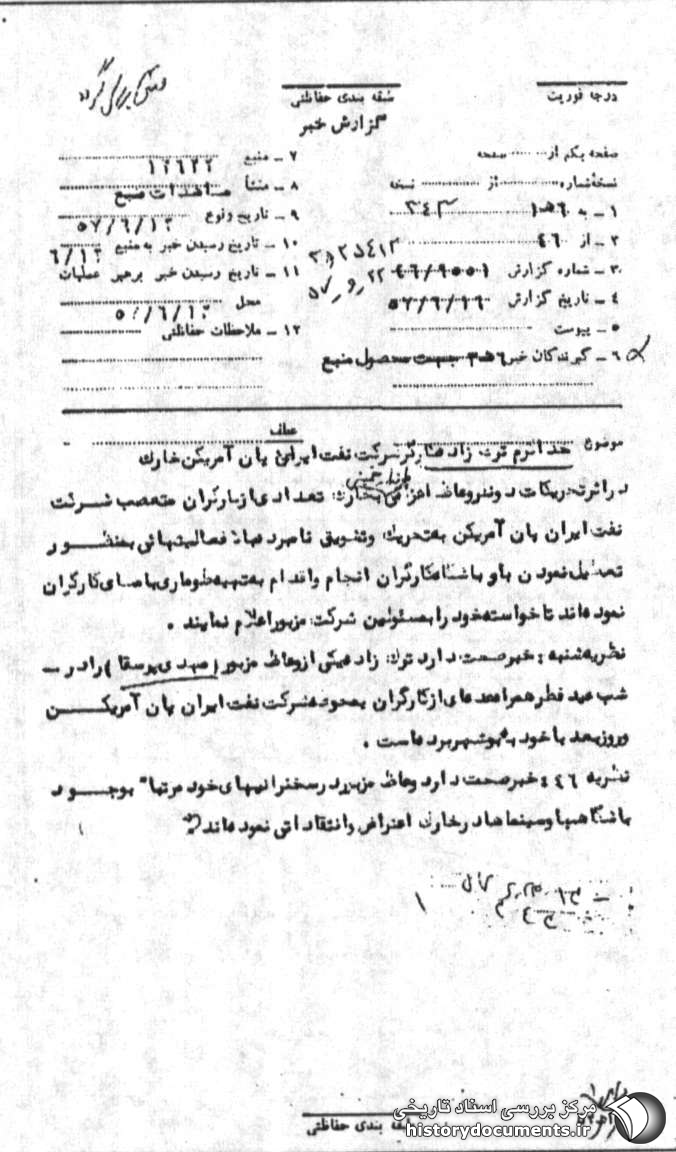 درجه فوریت
طبقه بندی حفاظتی
گزارش خبر
صفحه یکم از صفحه
نسخه شماره از نسخه
۱ ـ به ۳۴۳
۲ ـ از ۴۶
۳ ـ شماره گزارش
۴ ـ تاریخ گزارش ۵۷/۶/۱۶
۵ ـ پیوست
۶ ـ گیرندگان خبر جهت محصول منبع
۷ ـ منبع ۱۲۶۲۲
۸ ـ منشأ مشاهدات منبع
۹ ـ تاریخ وقوع ۵۷/۶/۱۳
۱۰ ـ تاریخ رسیدن خبر به منبع ۶/۱۳
۱۱ ـ تاریخ رسیدن خبر برهبر عملیات
محل ۵۷/۶/۱۳
۱۲ ـ ملاحظات حفاظتی
عطف
موضوع خداکرم ترک زاده کارگر شرکت نفت ایران پان آمریکن خارک
در اثر تحریکات دو نفر واعظ اعزامی بخارک تعدادی از کارگران متعصب شرکت
نفت ایران پان آمریکن به تحریک و تشویق نامبرده بالا فعالیتهائی بمنظور
تعطیل نمودن بار و باشگاه کارگران انجام و اقدام به تهیه طوماری با امضای کارگران
نموده اند تا خواسته خود را به مسئولین شرکت مزبور اعلام نمایند .
نظریه شنبه : خبر صحت دارد ترک زاده یکی از وعاظ مزبور (مهدی پرسقا) را در
شب عید فطر همراه عده ای از کارگران به محوطه شرکت نفت ایران پان آمریکن
و روز بعد با خود به بوشهر برده است .
نظریه ۴۴۶ خبر صحت دارد وعاظ مزبور در سخنرانیهای خود مرتباً بوجود
باشگاهها و سینماها در خارک اعتراض و انتقاداتی نموده اند
طبقه بندی حفاظتی
مرکز بررسی اسناد تاریخی
historydocuments.ir